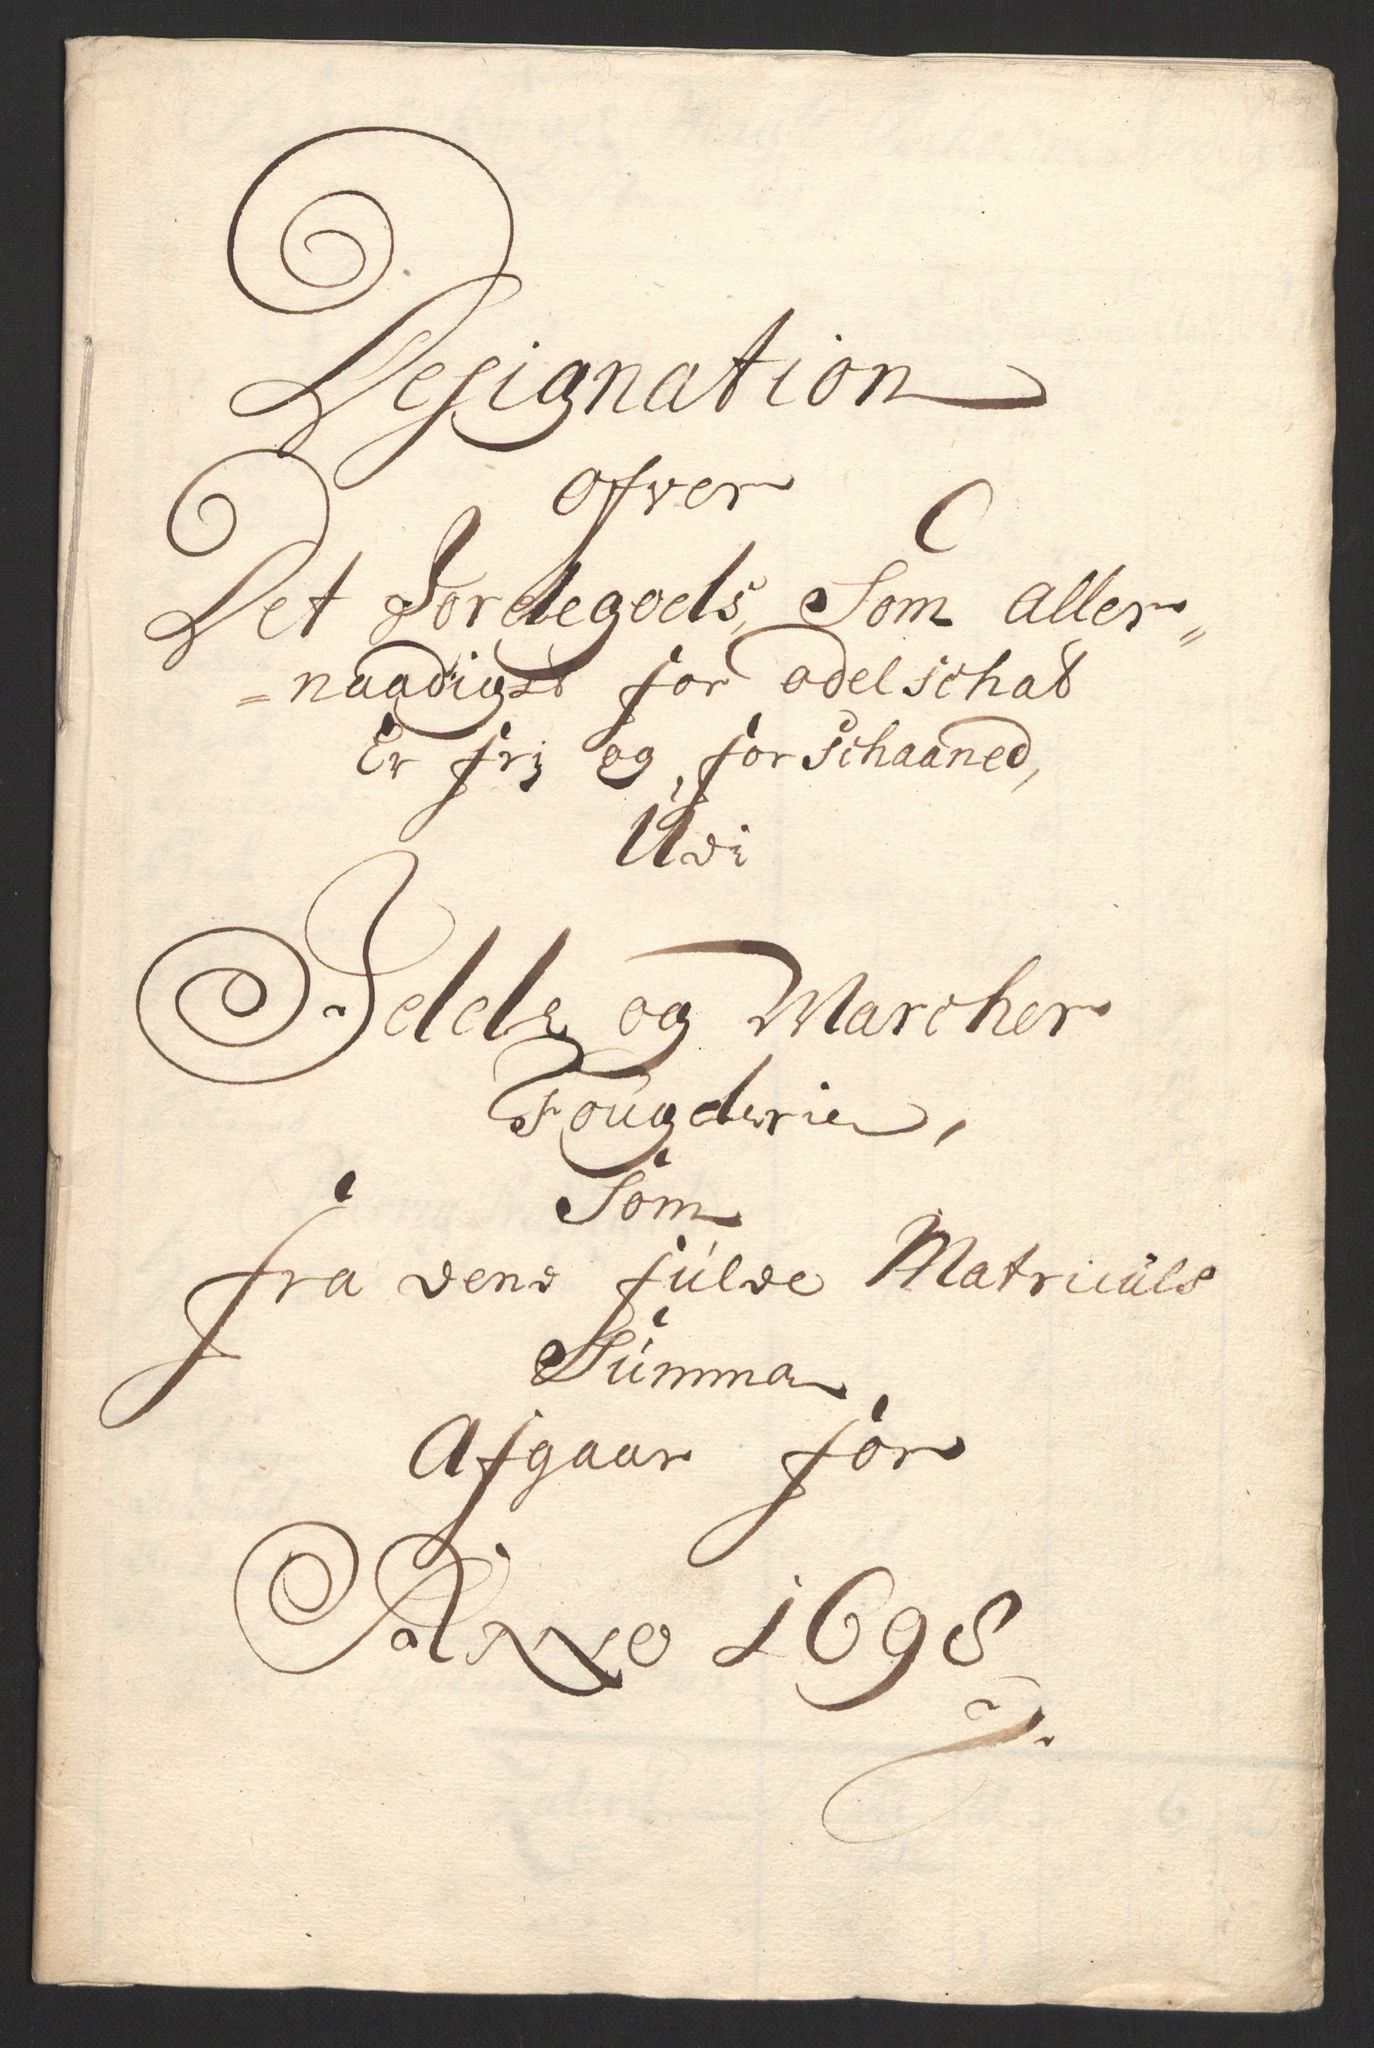 Designation
ofver
Det Jordegods, Som aller=
=naadigst for odelschat
Er frj og forschaaned,
Udi
Idde og Marcher
Fougderie,
Som
fra dend fulde Matriculs
Summa
Afgaar for
Anno 1698